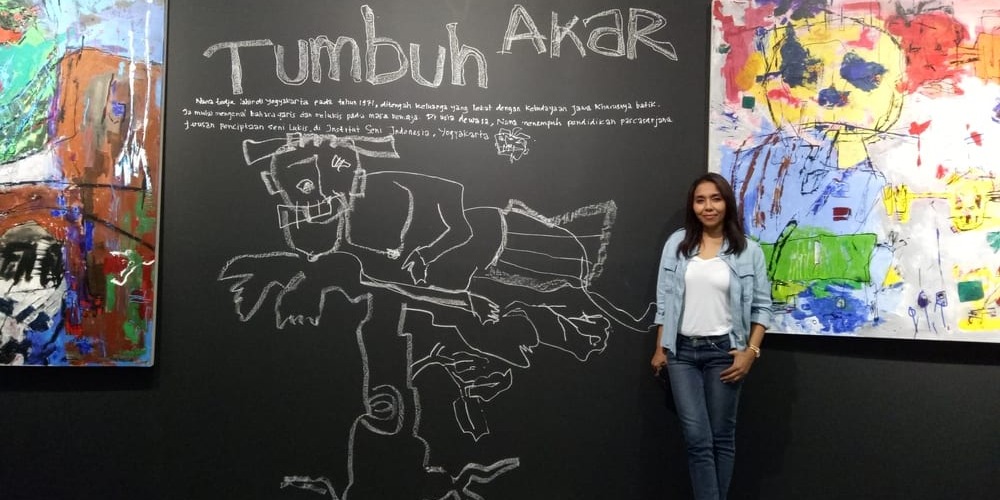 Tumbuh Akar
Nana tedja lahir di Yogyakarta pada tahun 1971, ditengah keluarga yang lekat dengan kebudayaan Jawa khususnya batik.
Ia mulai mengenal bahasa garis dan melukis pada masa remaja. Di usia dewasa, Nana menempuh pendidikan pascasarjana
jurusan penciptaan seni lukis, di Institut Seni Indonesia, Yogyakarta